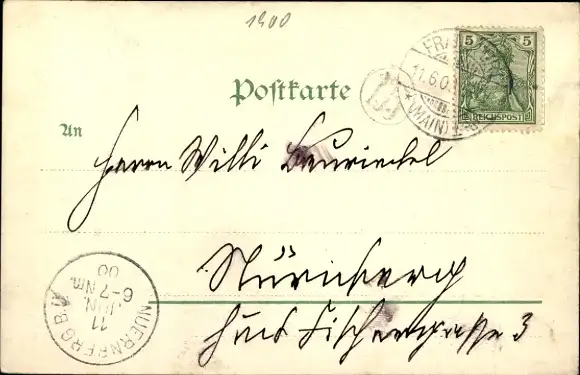 1900
5 5
REICHSPOST
FRANKFURT
11.6.0
(MAIN)
Postkarte
An
Herrn Willi
Nürnberg
Fischergasse 3
NUERNBERG B.
11
JUN.
6-7 Nm.
00